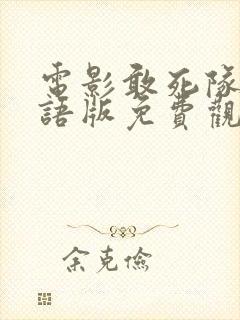 電影敢死隊
語版免費觀
余克儉